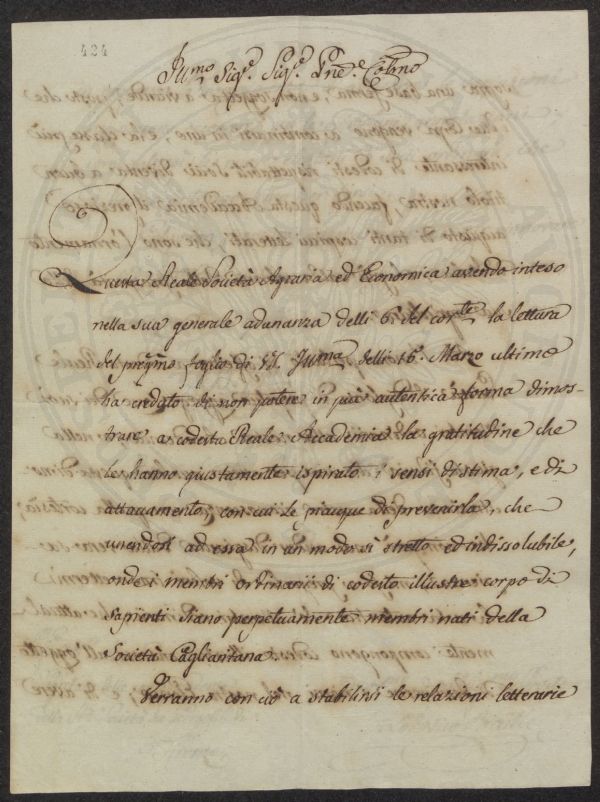 424
Illmo Sigr. Sigr. Pne. Colmo
Questa Reale Società Agraria ed Economica avendo inteso
nella sua generale adunanza delli 6. del corrte la lettura
del pregmo foglio di V.S. Illma delli 16. Marzo ultimo
ha creduto di non potere in più autentica forma dimos-
trare a codesta Reale Accademia la gratitudine che
le hanno giustamente ispirato i sensi di stima, e di
attaccamento, con cui le piacque di prevenirla, che
unendosi ad essa in un modo sì stretto ed indissolubile,
onde i membri ordinarii di codesto illustre corpo di
Sapienti siano perpetuamente membri nati della
Società Cagliaritana.
Verranno con ciò a stabilirsi le relazioni letterarie